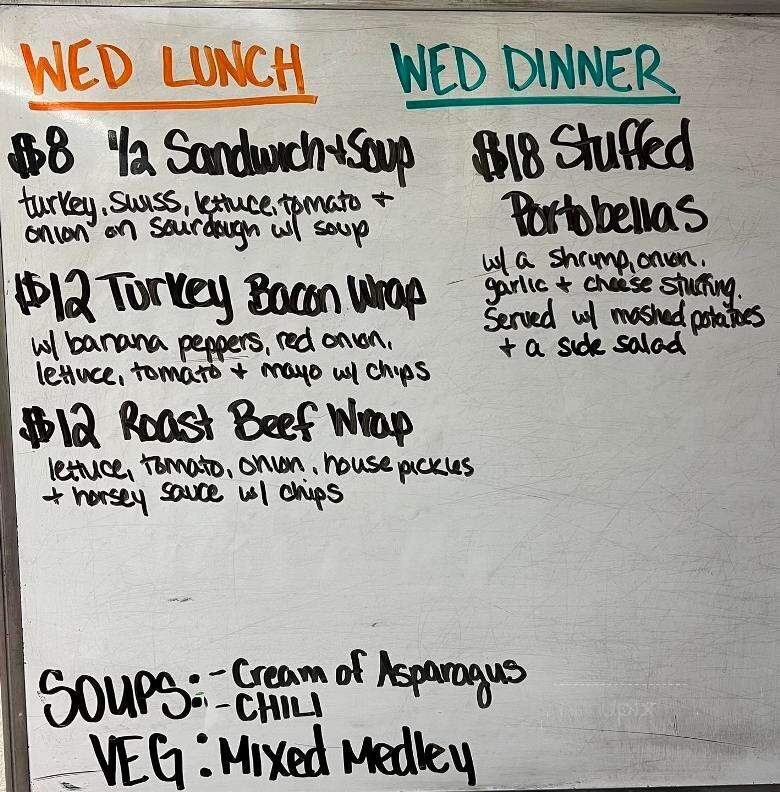 WED LUNCH
$8 1/2 Sandwich + Soup
turkey, swiss, lettuce, tomato +
onion on sourdough w/ soup
$12 Turkey Bacon Wrap
w/ banana peppers, red onion,
lettuce, tomato + mayo w/ chips
$12 Roast Beef Wrap
lettuce, tomato, onion, house pickles
+ horsey sauce w/ chips
WED DINNER
$18 Stuffed
Portobellas
w/ a shrimp, onion,
garlic + cheese stuffing.
Served w/ mashed potatoes
+ a side salad
SOUPS: - Cream of Asparagus
- CHILI
VEG: Mixed Medley